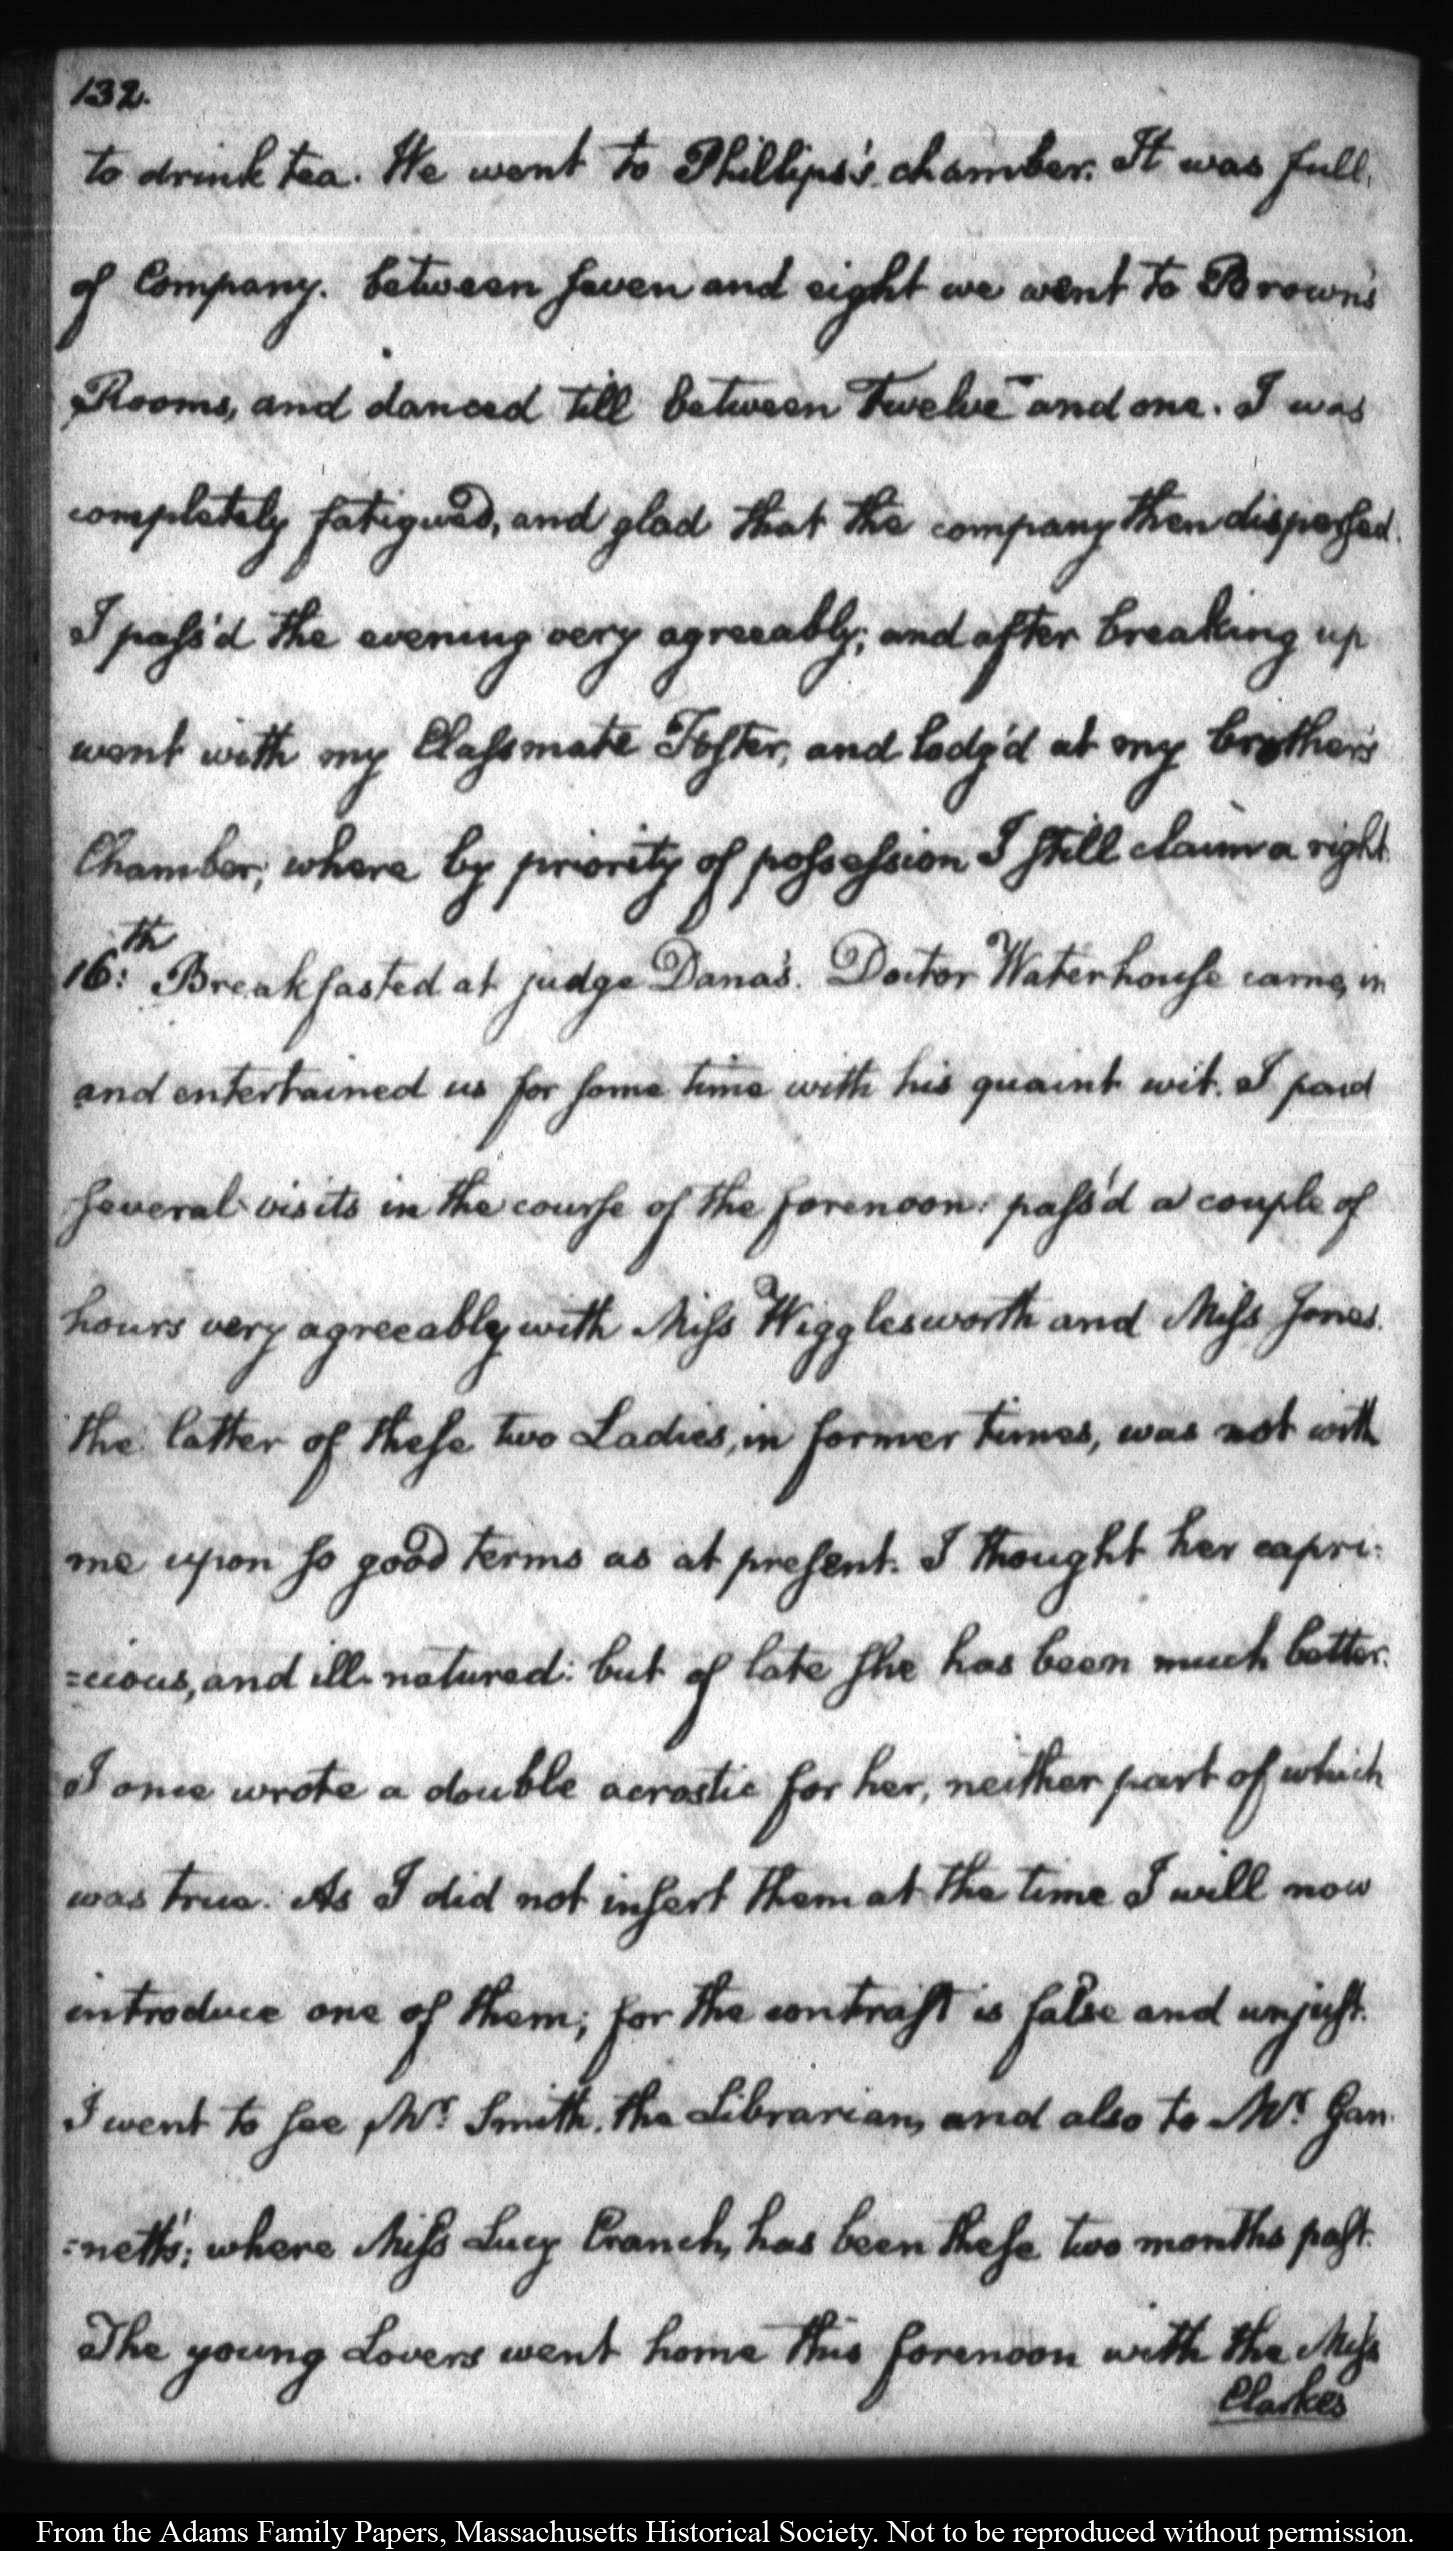 132.
to drink tea. We went to Phillips's chamber. It was full,
of Company. between seven and eight we went to Brown's
Rooms, and danced till between Twelve and one. I was
completely fatigued, and glad that the company then dispersed.
I pass'd the evening very agreeably; and after breaking up
went with my Classmate Foster, and lodg'd at my brother's
Chamber; where by priority of possession I still claim a right
16:th Breakfasted at judge Dana's. Doctor Waterhouse came, in
and entertained us for some time with his quaint wit. I paid
several visits in the course of the forenoon: pass'd a couple of
hours very agreeably with Miss Wigglesworth and Miss Jones.
the latter of these two Ladies, in former times, was not with
me upon so good terms as at present. I thought her capri-
=cious, and ill-natured: but of late she has been much better.
I once wrote a double acrostic for her, neither part of which
was true. As I did not insert them at the time I will now
introduce one of them; for the contrast is false and unjust.
I went to see Mr. Smith, the Librarian, and also to Mr. Gan-
=nett's; where Miss Lucy Cranch, has been these two months past.
The young Lovers went home this forenoon with the Miss
Clarkes
From the Adams Family Papers, Massachusetts Historical Society. Not to be reproduced without permission.